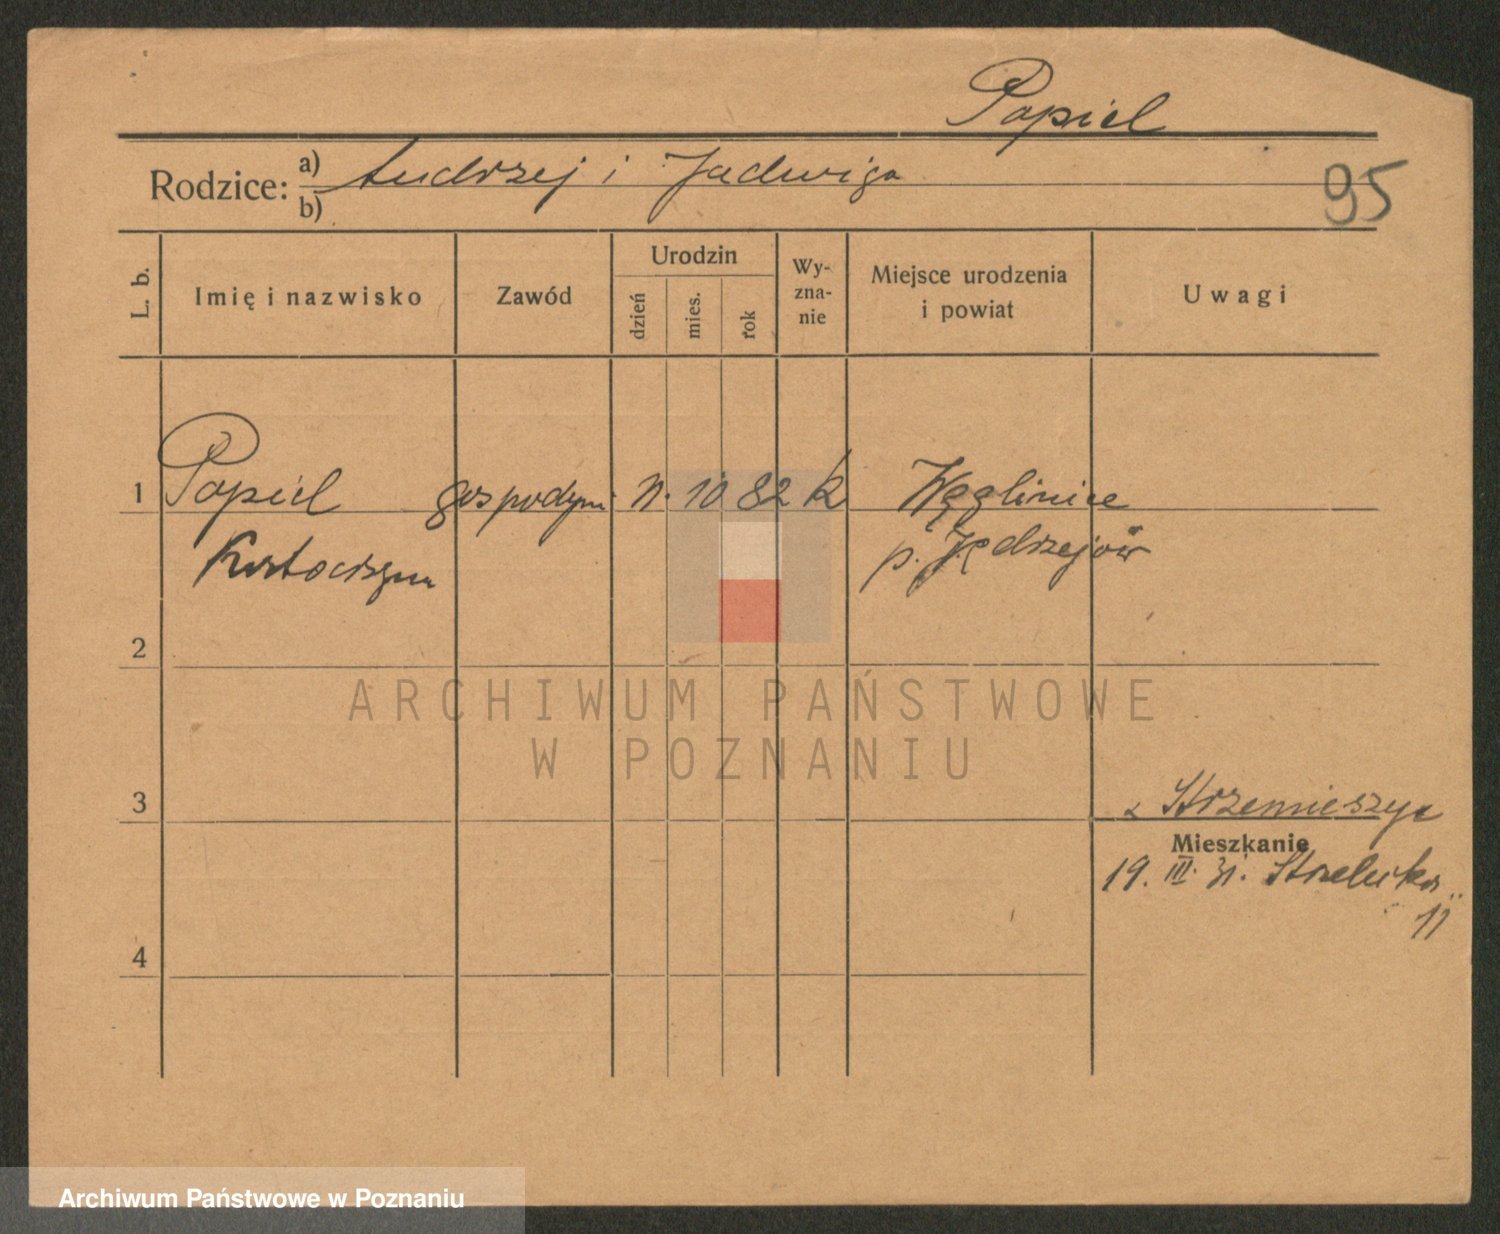 Popiel
Rodzice: a) Andrzej i Jadwiga
b)
95
L. b.
Imię i nazwisko
Zawód
Urodzin
dzień
mies.
rok
Wy-
zna-
nie
Miejsce urodzenia
i powiat
Uwagi
1 Popiel gospodyni 11. 10 82 k Węglinice
p. Jędrzejów
2
ARCHIWUM PAŃSTWOWE
W POZNANIU
3
z Strzemieszyc
Mieszkanie
19. III. 31. Strzelecka
11
4
Archiwum Państwowe w Poznaniu